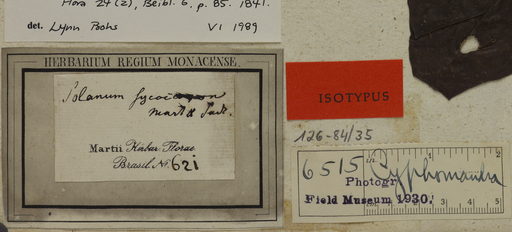 Flora 24 (2), Beibl. 6, p. 85. 1841.
det. Lynn Bohs VI 1989
HERBARIUM REGIUM MONACENSE.
Solanum
Mart & Sendt.
Martii Herbar. Florae
Brasil. No. 621
ISOTYPUS
126-84/35
6515 Cyphomandra
Photogr.
Field Museum 1930.